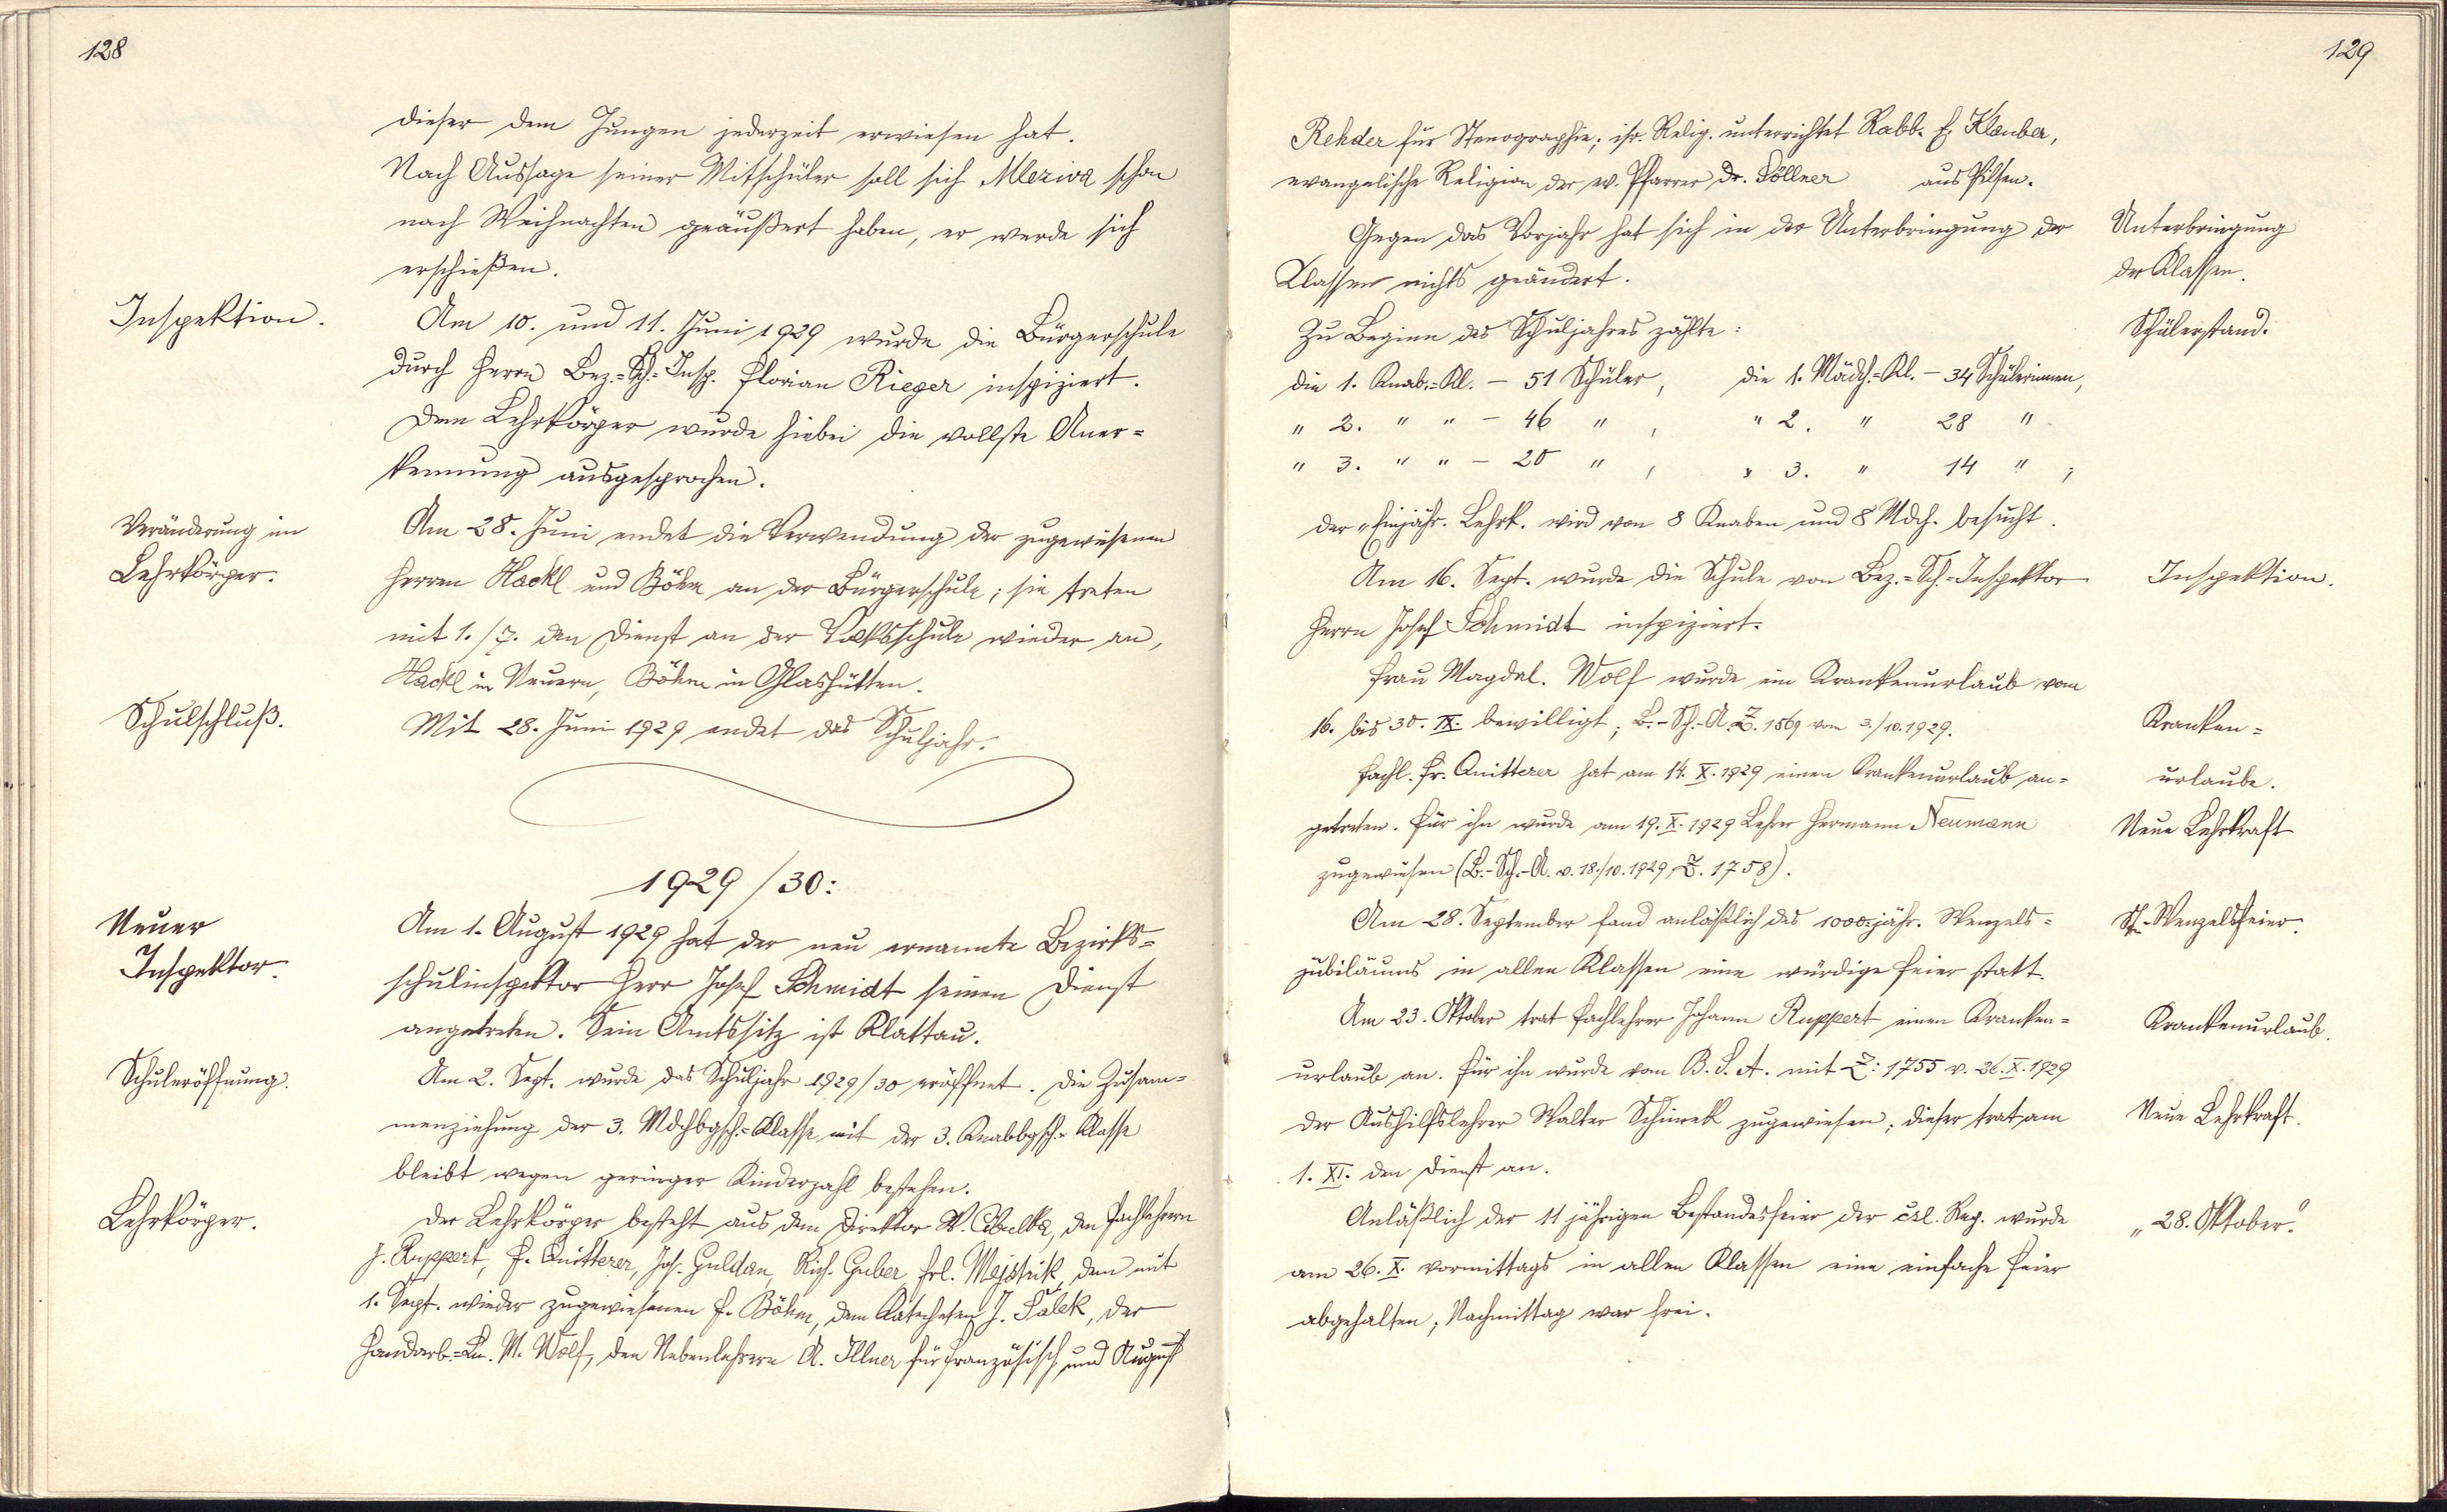 128
dieser dem Jungen jederzeit erwiesen hat.
Nach Aussage seiner Mitschüler soll sich Meziva schon
nach Weihnachten geäußert haben, er werde sich
erschießen.
Inspektion.
Am 10. und 11. Juni 1929 wurde die Bürgerschule
durch Herrn Bez.=Sch.=Insp. Florian Rieger inspiziert.
Dem Lehrkörper wurde hiebei die vollste Aner=
kennung ausgesprochen.
Veränderung im
Lehrkörper.
Am 28. Juni endet die Verwendung der zugewiesenen
Herren Hackl und Böhm an der Bürgerschule; sie treten
mit 1./7. den Dienst an der Volksschule wieder an,
Hackl in Neuern, Böhm in Glashütten.
Schulschluß.
Mit 28. Juni 1929 endet das Schuljahr.
1929/30:
Neuer
Inspektor.
Am 1. August 1929 hat der neu ernannte Bezirks=
schulinspektor Herr Josef Schmidt seinen Dienst
angetreten. Sein Amtssitz ist Klattau.
Schuleröffnung.
Am 2. Sept. wurde das Schuljahr 1929/30 eröffnet. Die Zusam=
menziehung der 3. Mdchbgsch.=Klasse mit der 3. Knabbgsch.=Klasse
bleibt wegen geringer Kinderzahl bestehen.
Lehrkörper.
Der Lehrkörper besteht aus dem Direktor W. Cibulka, den Fachlehrern
J. Ruppert, F. Quitterer, Jos. Guldan, Rich. Gruber, Frl. Mejstrik, dem mit
1. Sept. wieder zugewiesenen F. Böhm, dem Katecheten J. Šálek, der
Handarb.=Ln. M. Wolf, den Nebenlehrern A. Illner für Französisch und August
129
Rehder für Stenographie; isr. Relig. unterrichtet Rabb. E. Klauber,
evangelische Religion der ev. Pfarrer Dr. Söllner aus Pilsen.
Gegen das Vorjahr hat sich in der Unterbringung der
Klassen nichts geändert.
Unterbringung
der Klassen.
Zu Beginn des Schuljahres zählte:
Schülerstand.
die 1. Knab.=Kl. – 51 Schüler, die 1. Mädch.=Kl. – 34 Schülerinnen,
" 2. " " – 46 " , " 2. " 28 "
" 3. " " – 20 " , " 3. " 14 " ;
der Einjähr. Lehrk. wird von 8 Knaben und 8 Mdch. besucht.
Am 16. Sept. wurde die Schule von Bez.=Sch.=Inspektor
Herrn Josef Schmidt inspiziert.
Inspektion.
Frau Magdal. Wolf wurde ein Krankenurlaub vom
16. bis 30. IX. bewilligt; B.-Sch.-A. Z. 1569 vom 3./10.1929.
Kranken=
urlaube.
Fachl. Fr. Quitterer hat am 14. X. 1929 einen Krankenurlaub an=
getreten. Für ihn wurde am 19. X. 1929 Lehrer Hermann Neumann
zugewiesen (B.-Sch.-A. v. 18./10.1929, Z. 1758).
Neue Lehrkraft
Am 28. September fand anläßlich des 1000=jähr. Wenzels=
jubiläums in allen Klassen eine würdige Feier statt.
St.-Wenzelsfeier.
Am 23. Oktober trat Fachlehrer Johann Ruppert einen Kranken=
urlaub an. Für ihn wurde vom B. S. A. mit Z: 1755 v. 26. X. 1929
der Aushilfslehrer Walter Schimek zugewiesen; dieser trat am
1. XI. den Dienst an.
Krankenurlaub.
Neue Lehrkraft.
Anläßlich der 11 jährigen Bestandesfeier der čsl. Rep. wurde
am 26. X. vormittags in allen Klassen eine einfache Feier
abgehalten; Nachmittag war frei.
„28. Oktober."